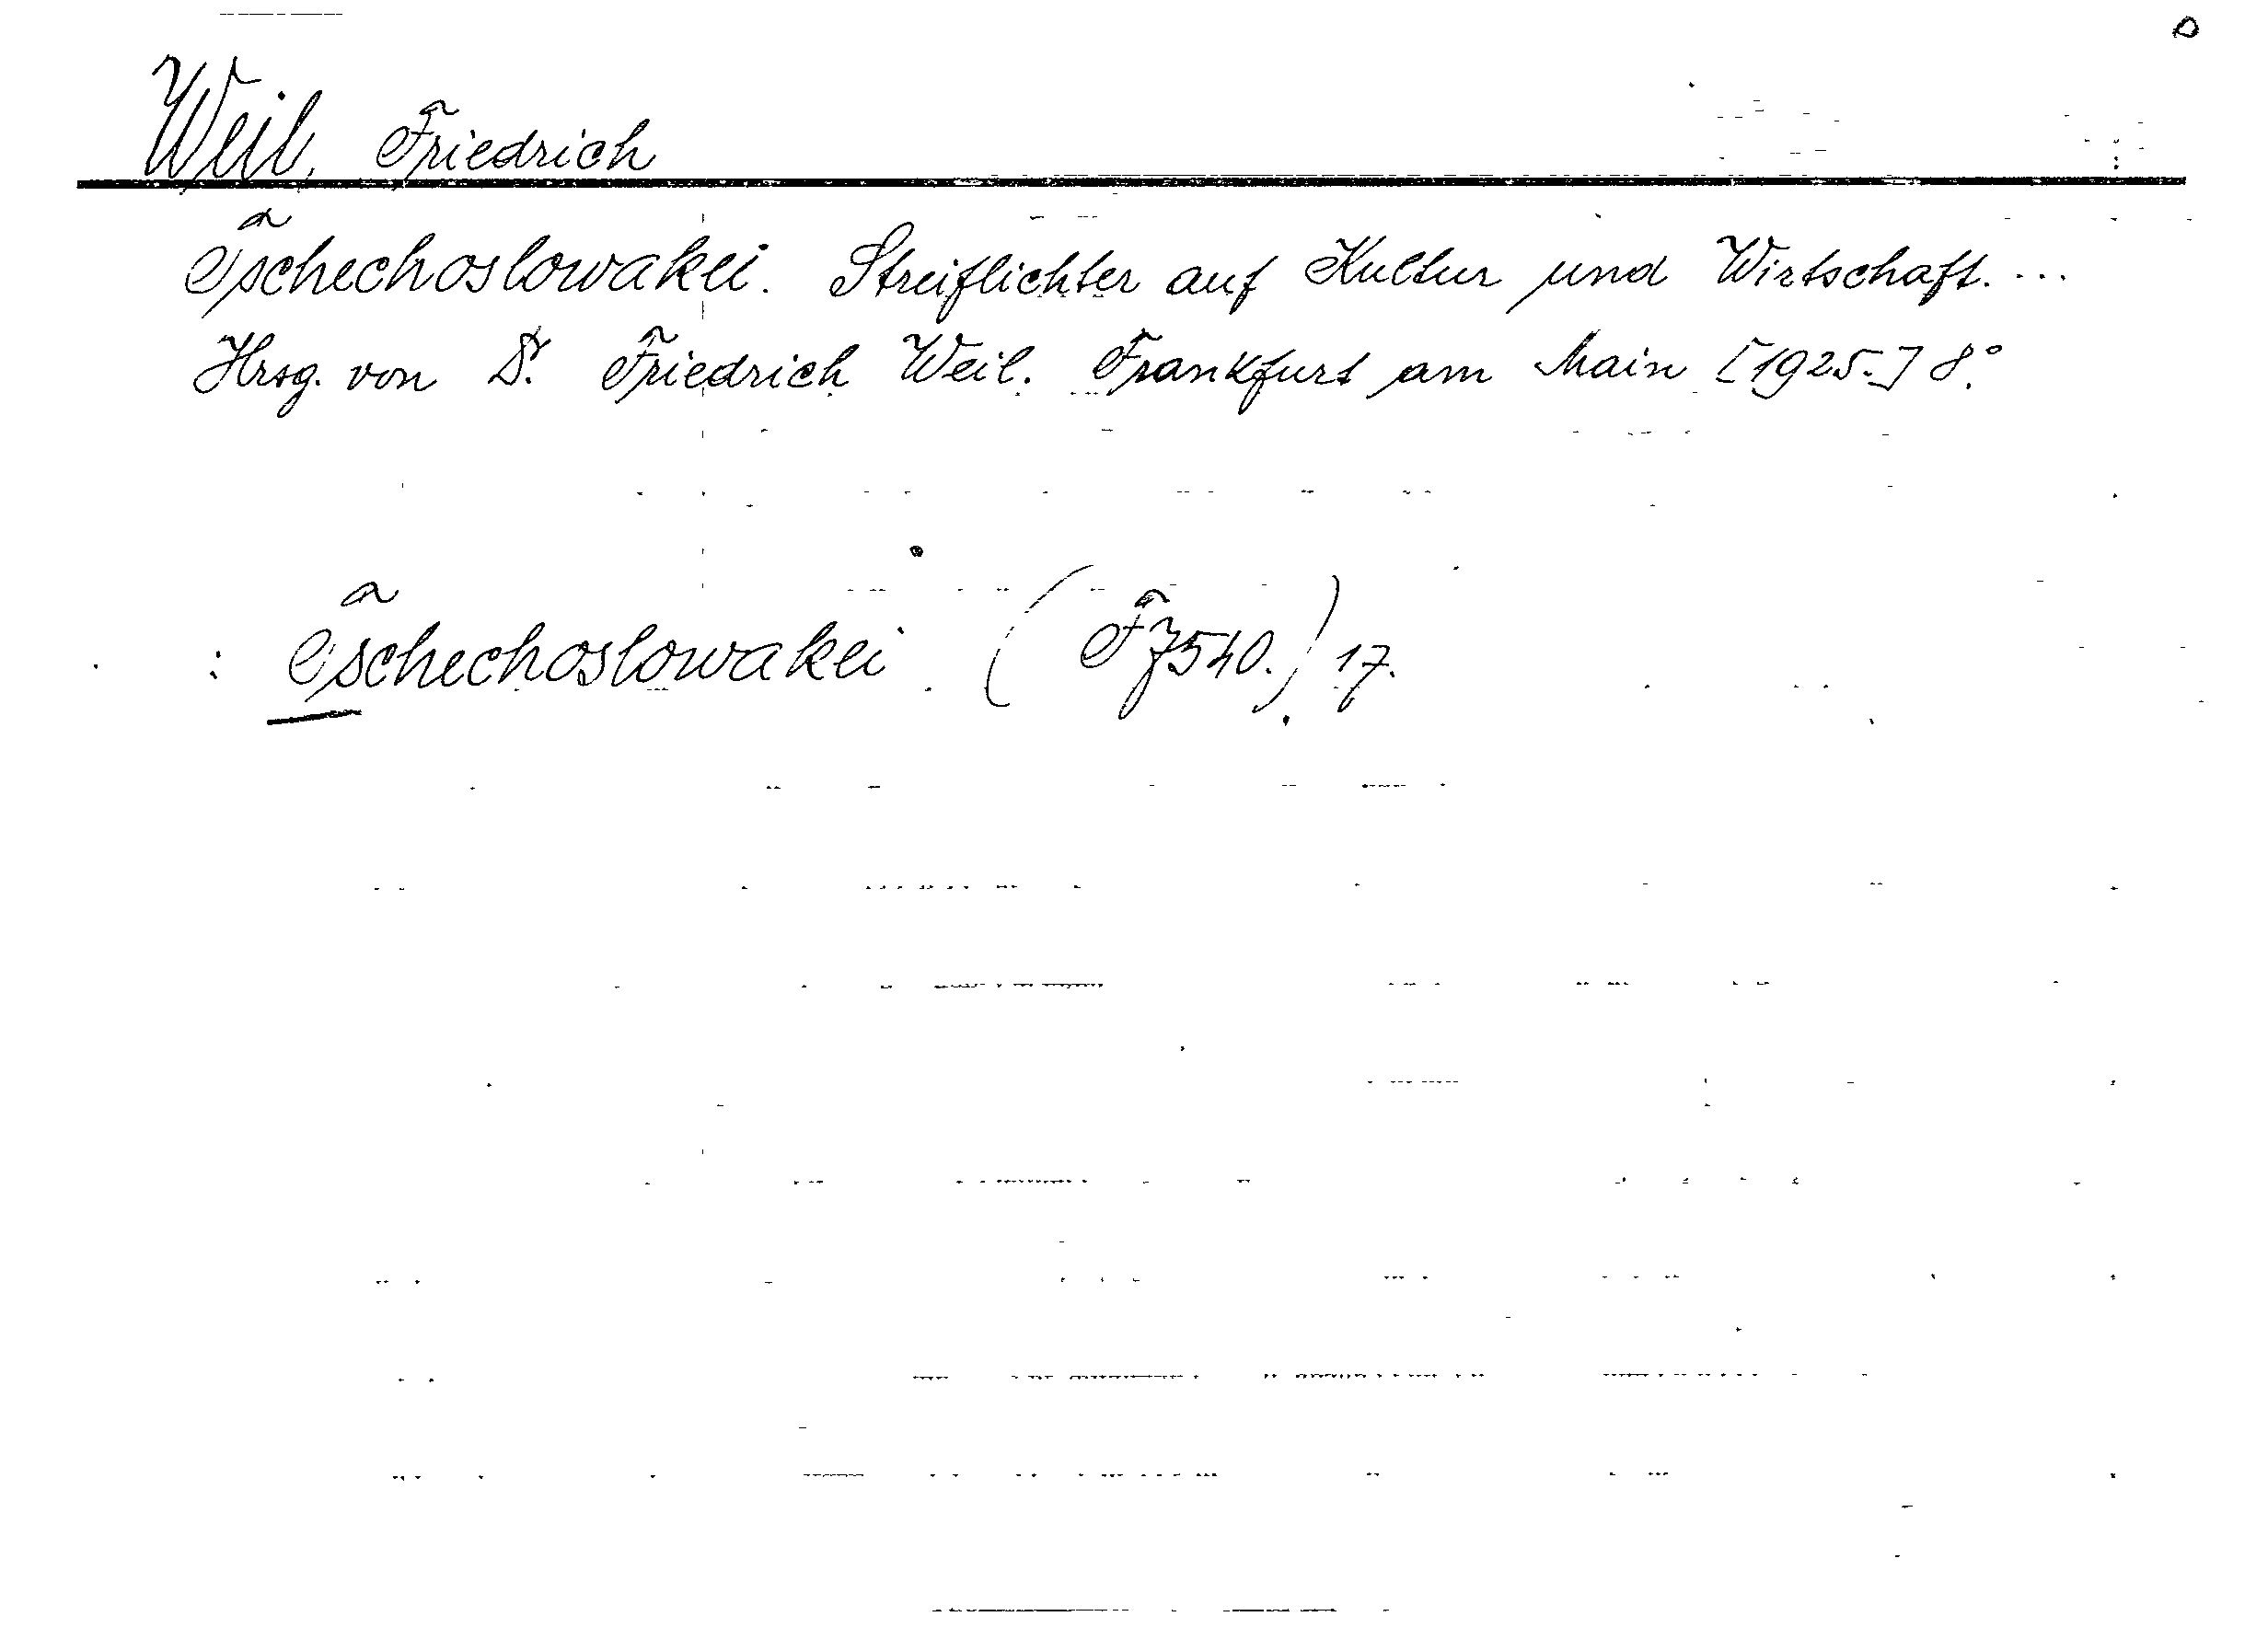 Weil, Friedrich
Tschechoslowakei. Streiflichter auf Kultur und Wirtschaft. ...
Hrsg. von Dr. Friedrich Weil. Frankfurt am Main [1925.] 8°.
: Tschechoslowakei. (F 7540.) 17.